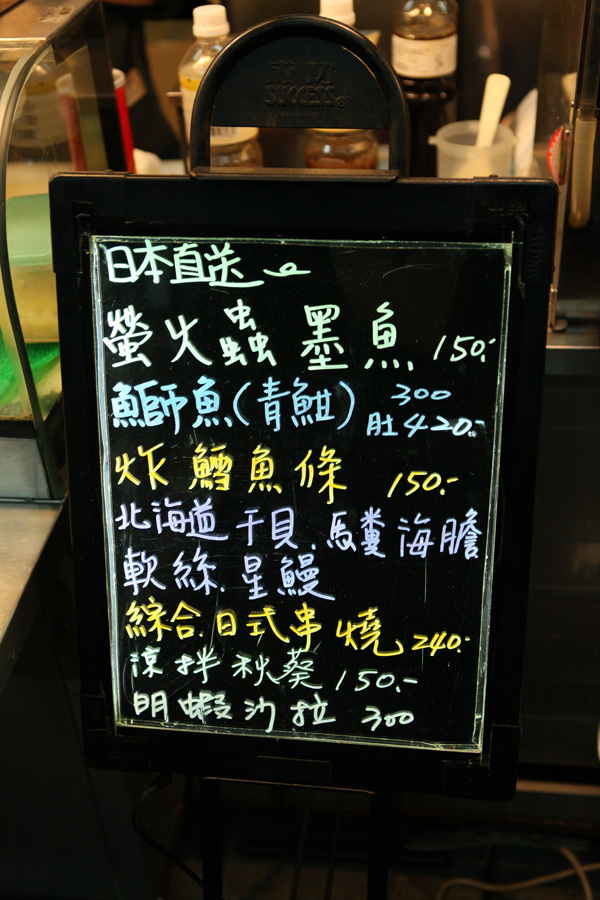 成功
SUCCESS®
日本直送
螢火蟲墨魚 150.-
鰤魚(青魽) 300
肚420.-
炸鱈魚條 150.-
北海道干貝.馬糞海膽
軟絲.星鰻
綜合.日式串燒 240.-
涼拌秋葵 150.-
明蝦沙拉 300